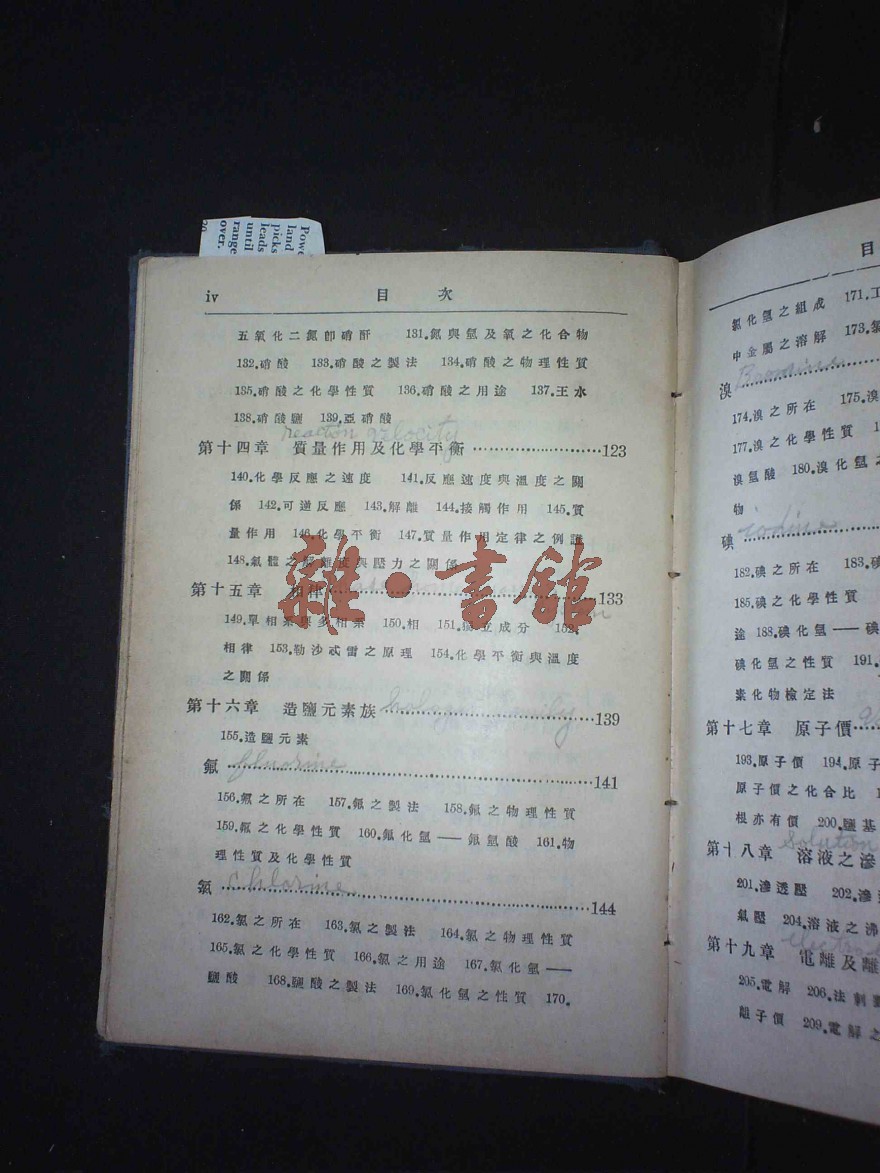 Powe
land
picks
leads
until
range
over.
iv 目 次
五氧化二氮卽硝酐 131.氮與氫及氧之化合物
132.硝酸 133.硝酸之製法 134.硝酸之物理性質
135.硝酸之化學性質 136.硝酸之用途 137.王水
138.硝酸鹽 139.亞硝酸
reaction velocity
第十四章 質量作用及化學平衡 123
140.化學反應之速度 141.反應速度與溫度之關
係 142.可逆反應 143.解離 144.接觸作用 145.質
量作用 146.化學平衡 147.質量作用定律之例證
148.氣體之解離度與壓力之關係
雜·書館
第十五章 相律 133
149.單相系與多相系 150.相 151.獨立成分 152.
相律 153.勒沙忒雷之原理 154.化學平衡與溫度
之關係
第十六章 造鹽元素族 halogen family 139
155.造鹽元素
氟 fluorine 141
156.氟之所在 157.氟之製法 158.氟之物理性質
159.氟之化學性質 160.氟化氫——氟氫酸 161.物
理性質及化學性質
氯 chlorine 144
162.氯之所在 163.氯之製法 164.氯之物理性質
165.氯之化學性質 166.氯之用途 167.氯化氫——
鹽酸 168.鹽酸之製法 169.氯化氫之性質 170.
目
氯化氫之組成 171.
中金屬之溶解 173.
溴 Bromine
174.溴之所在 175.溴
177.溴之化學性質
溴氫酸 180.溴化氫之
物
碘 iodine
182.碘之所在 183.碘
185.碘之化學性質
途 188.碘化氫——碘
碘化氫之性質 191.
素化物檢定法
第十七章 原子價
193.原子價 194.原子
原子價之化合比
根亦有價 200.鹽基
Solution
第十八章 溶液之滲
201.滲透壓 202.滲
氣壓 204.溶液之沸
electro
第十九章 電離及離
205.電解 206.法剌
離子價 209.電解之